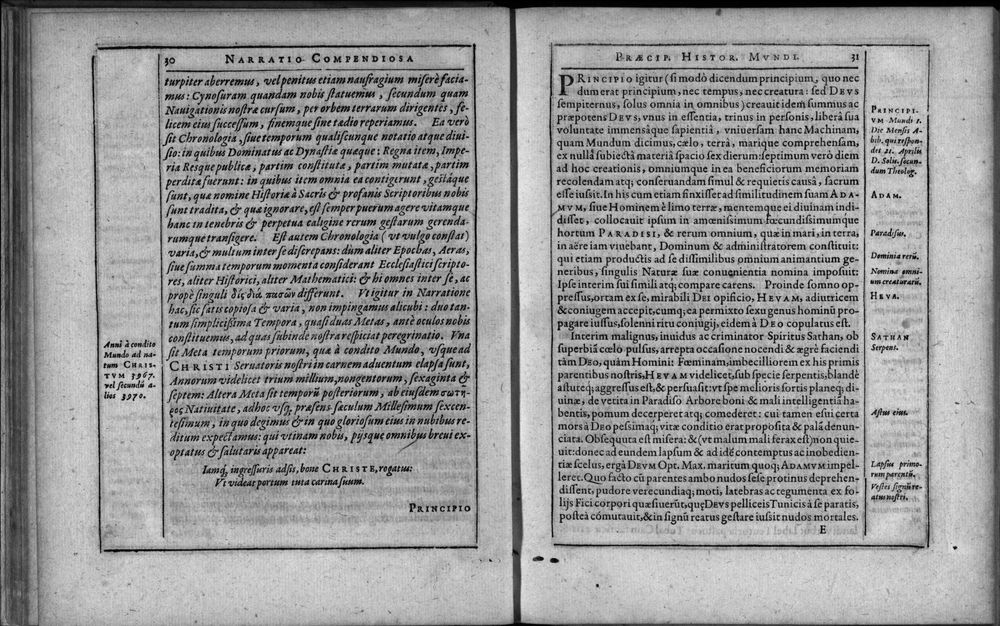 30 NARRATIO COMPENDIOSA
turpiter aberremus, vel penitus etiam naufragium miserè facia-
mus: Cynosuram quandam nobis statuemus, secundum quam
Nauigationis nostræ cursum, per orbem terrarum dirigentes, fe-
licem eius successum, finemque sine tædio reperiamus. Ea verò
sit Chronologia, siue temporum qualiscunque notatio atque diui-
sio: in quibus Dominatus ac Dynastiæ quæque: Regna item, Impe-
ria Resque publicæ, partim constitutæ, partim mutatæ, partim
perditæ fuerunt: in quibus item omnia ea contigerunt, gestáque
sunt, quæ nomine Historiæ à Sacris & profanis Scriptoribus nobis
sunt tradita, & quæ ignorare, est semper puerum agere vitamque
hanc in tenebris & perpetua caligine rerum gestarum gerenda-
rumque transigere. Est autem Chronologia (vt vulgo constat)
varia, & multum inter se discrepans: dùm aliter Epochas, Aeras,
siue summa temporum momenta considerant Ecclesiastici scripto-
res, aliter Historici, aliter Mathematici: & hi omnes inter se, ac
propè singuli δὶς διὰ πασῶν differunt. Vt igitur in Narratione
hac, sic satis copiosa & varia, non impingamus alicubi: duo tan-
tum simplicissima Tempora, quasi duas Metas, antè oculos nobis
constituemus, ad quas subinde nostra respiciat peregrinatio. Vna
sit Meta temporum priorum, quæ à condito Mundo, vsque ad
CHRISTI Seruatoris nostri in carnem aduentum elapsa sunt,
Annorum videlicet trium millium, nongentorum, sexaginta &
septem: Altera Meta sit temporũ posteriorum, ab eiusdem σωτῆ-
ρος Natiuitate, adhoc vsq; præsens sæculum Millesimum sexcen-
tesimum, in quo degimus & in quo gloriosum eius in nubibus re-
ditum expectamus: qui vtinam nobis, pijsque omnibus breui ex-
optatus & salutaris appareat:
Iamq; ingressuris adsis, bone CHRISTE, rogatus:
Vt videat portum tuta carina suum.
PRINCIPIO
Anni à condito
Mundo ad na-
tum CHRIS-
TVM 3967.
vel secundũ a-
lios 3970.
PRÆCIP. HISTOR. MVNDI. 31
PRINCIPIO igitur (si modò dicendum principium, quo nec
dum erat principium, nec tempus, nec creatura: sed DEVS
sempiternus, solus omnia in omnibus) creauit idem summus ac
præpotens DEVS, vnus in essentia, trinus in personis, libera sua
voluntate immensáque sapientiâ, vniuersam hanc Machinam,
quam Mundum dicimus, cælo, terrâ, marique comprehensam,
ex nullâ subiectâ materiâ spacio sex dierum: septimum verò diem
ad hoc creationis, omniumque in ea beneficiorum memoriam
recolendam atq; conseruandam simul & requietis causâ, sacrum
esse iussit. In his cum etiam finxisset ad similitudinem suam ADA-
MVM, siue Hominem è limo terræ, mentemque ei diuinam indi-
disset, collocauit ipsum in amœnissimum fœcundissimumque
hortum PARADISI, & rerum omnium, quæ in mari, in terra,
in aëre iam viuebant, Dominum & administratorem constituit:
qui etiam productis ad se dissimilibus omnium animantium ge-
neribus, singulis Naturæ suæ conuenientia nomina imposuit:
Ipse interim sui simili atq; compare carens. Proinde somno op-
pressus, ortam ex se, mirabili DEI opificio, HEVAM, adiutricem
& coniugem accepit, cumq; ea permixto sexu genus hominũ pro-
pagare iussus, solenni ritu coniugij, eidem à DEO copulatus est.
Interim malignus, inuidus ac criminator Spiritus Sathan, ob
superbiâ cælo pulsus, arrepta occasione nocendi & ægrè faciendi
tàm DEO, quàm Homini: Fœminam, imbecilliorem ex his primis
parentibus nostris, HEVAM videlicet, sub specie serpentis, blandè
astuteq; aggressus est, & persuasit: vt spe melioris sortis planeq; di-
uinæ, de vetita in Paradiso Arbore boni & mali intelligentiã ha-
bentis, pomum decerperet atq; comederet: cui tamen esui certa
mors à DEO pessimaq; vitæ conditio erat proposita & palã denun-
ciata. Obsequuta est misera: & (vt malum mali ferax est) non quie-
uit: donec ad eundem lapsum & ad idẽ contemptus ac inobedien-
tiæ scelus, ergà DEVM Opt. Max. maritum quoq; ADAMVM impel-
leret. Quo facto cũ parentes ambo nudos sese protinus deprehen-
dissent, pudore verecundiaq; moti, latebras ac tegumenta ex fo-
lijs Fici corpori quæsiuerũt, quę DEVS pelliceis Tunicis à se paratis,
posteà cõmutauit, & in signũ reatus gestare iussit nudos mortales.
E
PRINCIPI-
VM Mundi 1.
Die Mensis A-
bib. qui respon-
det 21. Aprilis
D. Solis, secun-
dum Theolog.
ADAM.
Paradisus.
Dominia rerũ.
Nomina omni-
um creaturarũ.
HEVA.
SATHAN
Serpens.
Astus eius.
Lapsus primo-
rum parentũ.
Vestes signũ re-
atus nostri.